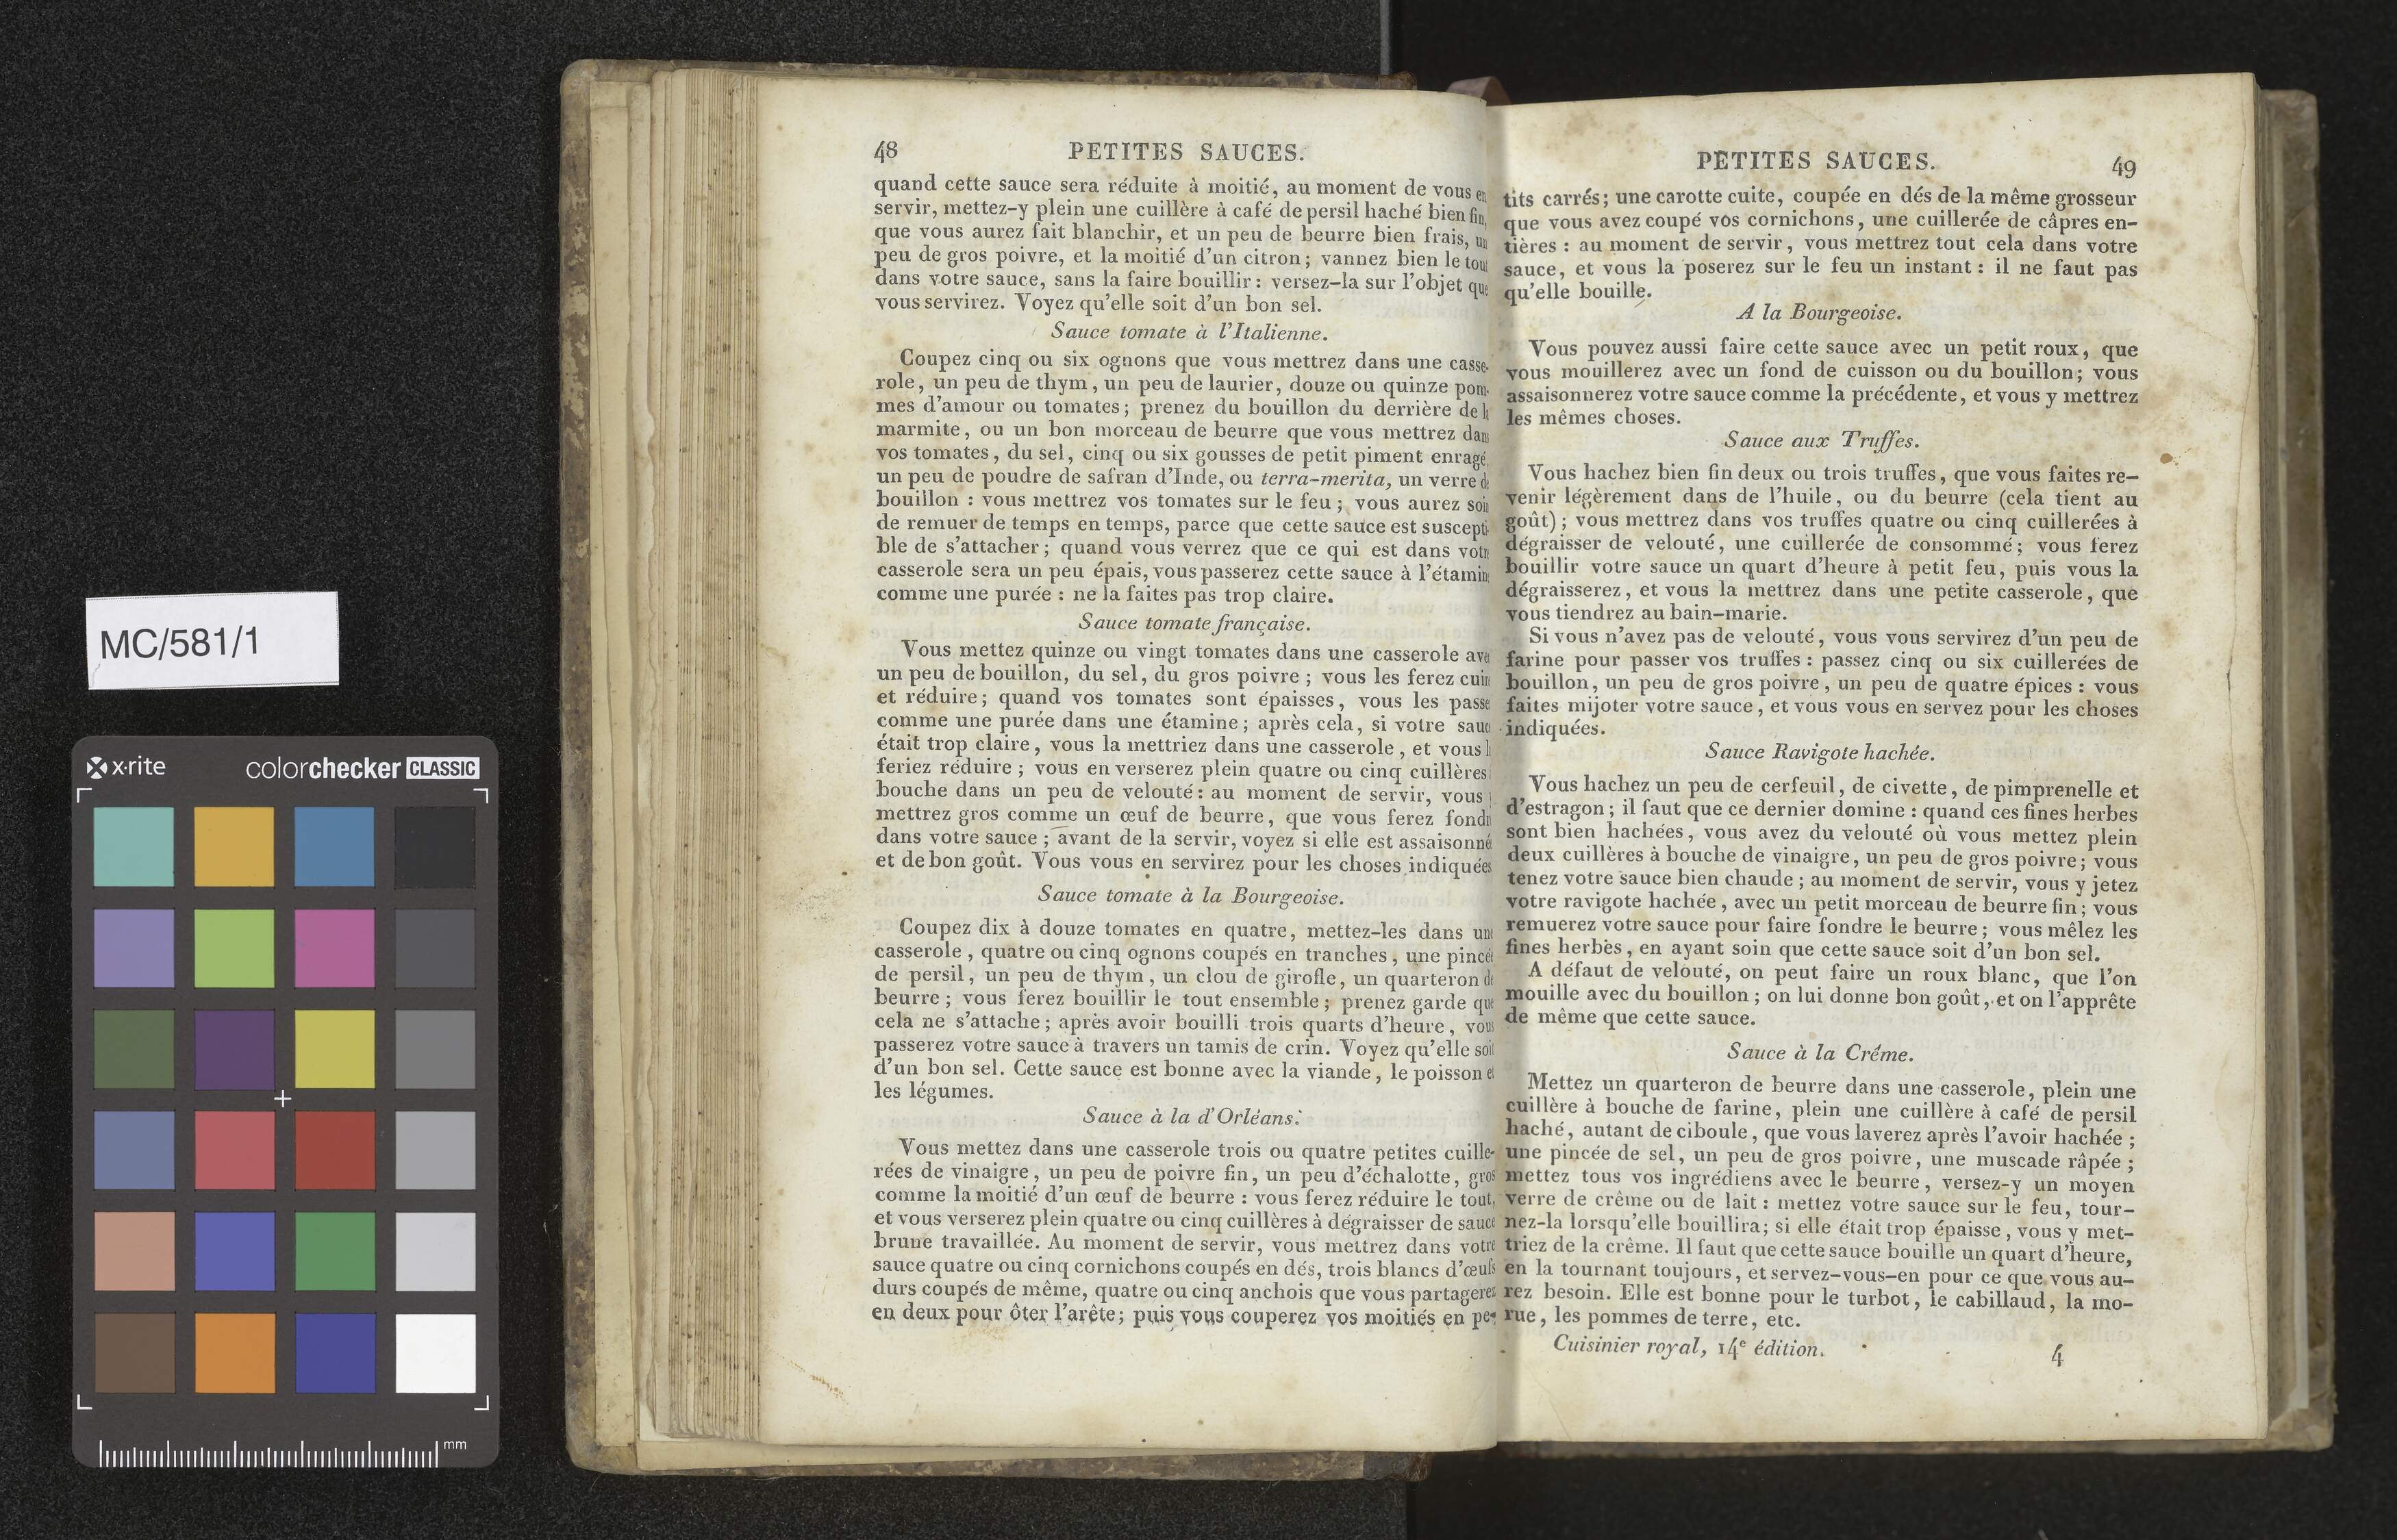 MC/581/1
x·rite
colorchecker CLASSIC
mm
48 PETITES SAUCES.
quand cette sauce sera réduite à moitié, au moment de vous en
servir, mettez-y plein une cuillère à café de persil haché bien fin,
que vous aurez fait blanchir, et un peu de beurre bien frais, un
peu de gros poivre, et la moitié d'un citron; vannez bien le tout
dans votre sauce, sans la faire bouillir: versez-la sur l'objet que
vous servirez. Voyez qu'elle soit d'un bon sel.
Sauce tomate à l'Italienne.
Coupez cinq ou six ognons que vous mettrez dans une casse-
role, un peu de thym, un peu de laurier, douze ou quinze pom-
mes d'amour ou tomates; prenez du bouillon du derrière de la
marmite, ou un bon morceau de beurre que vous mettrez dans
vos tomates, du sel, cinq ou six gousses de petit piment enragé,
un peu de poudre de safran d'Inde, ou terra-merita, un verre de
bouillon : vous mettrez vos tomates sur le feu; vous aurez soin
de remuer de temps en temps, parce que cette sauce est suscepti-
ble de s'attacher; quand vous verrez que ce qui est dans votre
casserole sera un peu épais, vous passerez cette sauce à l'étamine
comme une purée : ne la faites pas trop claire.
Sauce tomate française.
Vous mettez quinze ou vingt tomates dans une casserole avec
un peu de bouillon, du sel, du gros poivre; vous les ferez cuire
et réduire; quand vos tomates sont épaisses, vous les passez
comme une purée dans une étamine; après cela, si votre sauce
était trop claire, vous la mettriez dans une casserole, et vous la
feriez réduire; vous en verserez plein quatre ou cinq cuillères
bouche dans un peu de velouté: au moment de servir, vous
mettrez gros comme un œuf de beurre, que vous ferez fondre
dans votre sauce; avant de la servir, voyez si elle est assaisonnée
et de bon goût. Vous vous en servirez pour les choses indiquées
Sauce tomate à la Bourgeoise.
Coupez dix à douze tomates en quatre, mettez-les dans une
casserole, quatre ou cinq ognons coupés en tranches, une pincée
de persil, un peu de thym, un clou de girofle, un quarteron de
beurre; vous ferez bouillir le tout ensemble; prenez garde que
cela ne s'attache; après avoir bouilli trois quarts d'heure, vous
passerez votre sauce à travers un tamis de crin. Voyez qu'elle soit
d'un bon sel. Cette sauce est bonne avec la viande, le poisson et
les légumes.
Sauce à la d'Orléans.
Vous mettez dans une casserole trois ou quatre petites cuille-
rées de vinaigre, un peu de poivre fin, un peu d'échalotte, gros
comme la moitié d'un œuf de beurre : vous ferez réduire le tout,
et vous verserez plein quatre ou cinq cuillères à dégraisser de sauce
brune travaillée. Au moment de servir, vous mettrez dans votre
sauce quatre ou cinq cornichons coupés en dés, trois blancs d'œufs
durs coupés de même, quatre ou cinq anchois que vous partagerez
en deux pour ôter l'arête; puis vous couperez vos moitiés en pe-
PETITES SAUCES. 49
tits carrés; une carotte cuite, coupée en dés de la même grosseur
que vous avez coupé vos cornichons, une cuillerée de câpres en-
tières : au moment de servir, vous mettrez tout cela dans votre
sauce, et vous la poserez sur le feu un instant: il ne faut pas
qu'elle bouille.
A la Bourgeoise.
Vous pouvez aussi faire cette sauce avec un petit roux, que
vous mouillerez avec un fond de cuisson ou du bouillon; vous
assaisonnerez votre sauce comme la précédente, et vous y mettrez
les mêmes choses.
Sauce aux Truffes.
Vous hachez bien fin deux ou trois truffes, que vous faites re-
venir légèrement dans de l'huile, ou du beurre (cela tient au
goût); vous mettrez dans vos truffes quatre ou cinq cuillerées à
dégraisser de velouté, une cuillerée de consommé; vous ferez
bouillir votre sauce un quart d'heure à petit feu, puis vous la
dégraisserez, et vous la mettrez dans une petite casserole, que
vous tiendrez au bain-marie.
Si vous n'avez pas de velouté, vous vous servirez d'un peu de
farine pour passer vos truffes : passez cinq ou six cuillerées de
bouillon, un peu de gros poivre, un peu de quatre épices : vous
faites mijoter votre sauce, et vous vous en servez pour les choses
indiquées.
Sauce Ravigote hachée.
Vous hachez un peu de cerfeuil, de civette, de pimprenelle et
d'estragon; il faut que ce dernier domine : quand ces fines herbes
sont bien hachées, vous avez du velouté où vous mettez plein
deux cuillères à bouche de vinaigre, un peu de gros poivre; vous
tenez votre sauce bien chaude; au moment de servir, vous y jetez
votre ravigote hachée, avec un petit morceau de beurre fin; vous
remuerez votre sauce pour faire fondre le beurre; vous mêlez les
fines herbes, en ayant soin que cette sauce soit d'un bon sel.
A défaut de velouté, on peut faire un roux blanc, que l'on
mouille avec du bouillon; on lui donne bon goût, et on l'apprête
de même que cette sauce.
Sauce à la Crême.
Mettez un quarteron de beurre dans une casserole, plein une
cuillère à bouche de farine, plein une cuillère à café de persil
haché, autant de ciboule, que vous laverez après l'avoir hachée;
une pincée de sel, un peu de gros poivre, une muscade râpée;
mettez tous vos ingrédiens avec le beurre, versez-y un moyen
verre de crême ou de lait : mettez votre sauce sur le feu, tour-
nez-la lorsqu'elle bouillira; si elle était trop épaisse, vous y met-
triez de la crême. Il faut que cette sauce bouille un quart d'heure,
en la tournant toujours, et servez-vous-en pour ce que vous au-
rez besoin. Elle est bonne pour le turbot, le cabillaud, la mo-
rue, les pommes de terre, etc.
Cuisinier royal, 14e édition. 4